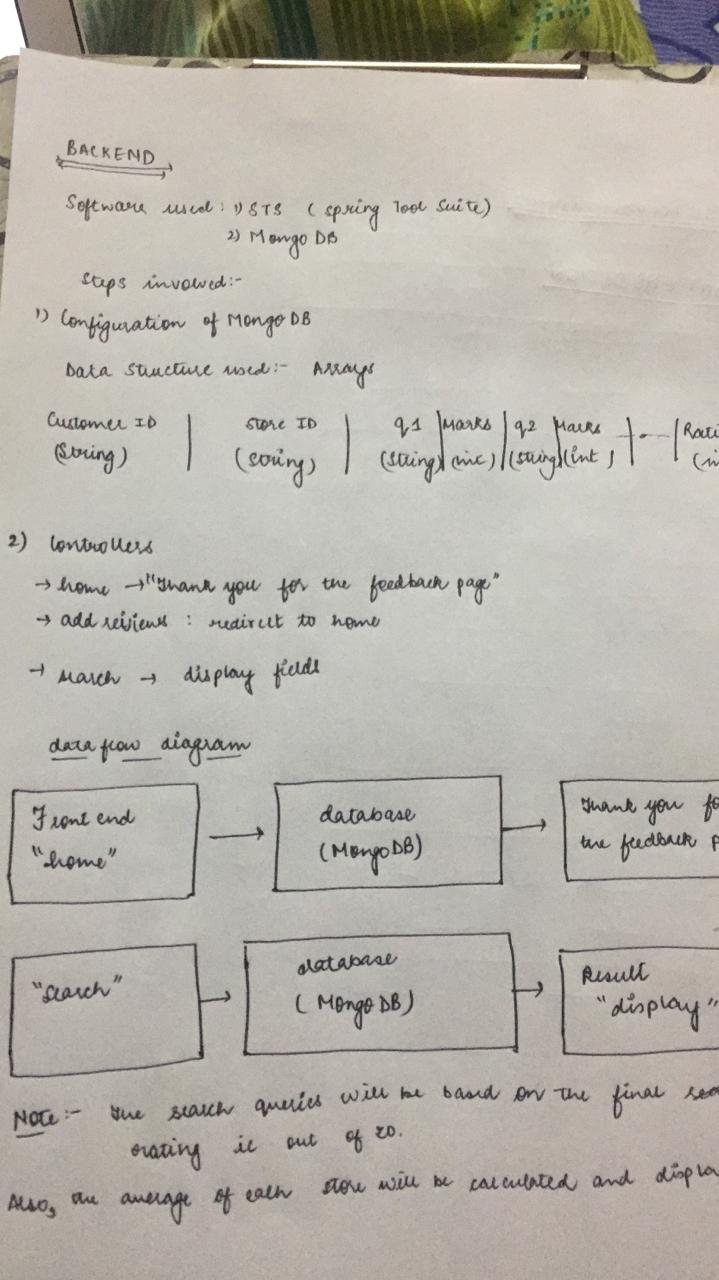 BACKEND
Software used : 1) STS ( spring Tool Suite)
2) Mongo DB
Steps involved:-
1) Configuration of MongoDB
Data structure used:- Arrays
Customer ID | store ID | q1 | Marks | q2 | Marks | --- | Rati
(String) (string) (String) (int) (string) (int)
2) Controllers
→ home → "Thank you for the feedback page"
→ add reviews : redirect to home
→ search → display fields
data flow diagram
Front end → database → Thank you fo
"home" (MongoDB) the feedback p
"search" → database → Result
( MongoDB) "display"
Note:- The search queries will be based on the final
rating ie out of 20.
Also, the average of each store will be calculated and displa